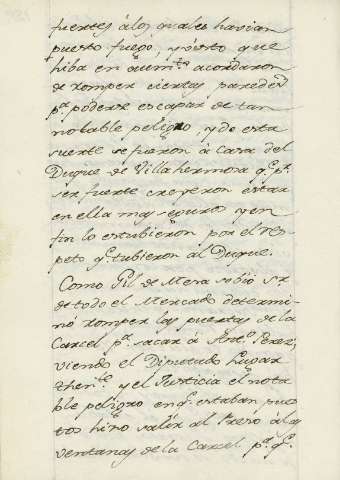 fuertes á los quales havian
puesto fuego, y visto que
hiba en aumto. acordaron
de romper ciertas paredes
pa. poderse escapar de tan
notable peligro, y de esta
suerte se fueron á Casa del
Duque de Villahermosa qe. pr.
ser fuerte creyeron estar
en ella mas seguros y en
fin lo estubieron por el res-
peto qe. tubieron al Duque.
Como Gil de Mesa se bió Sr.
de todo el Mercado determi-
nó romper las puertas de la
Carcel pa. sacar á Anto. Perez,
viendo el Diputado, Lugar
thente. y el Justicia el nota
ble peligro en qe. estaban pues
tos hizo salir al Preso á las
ventanas de la Carcel pa. qe.